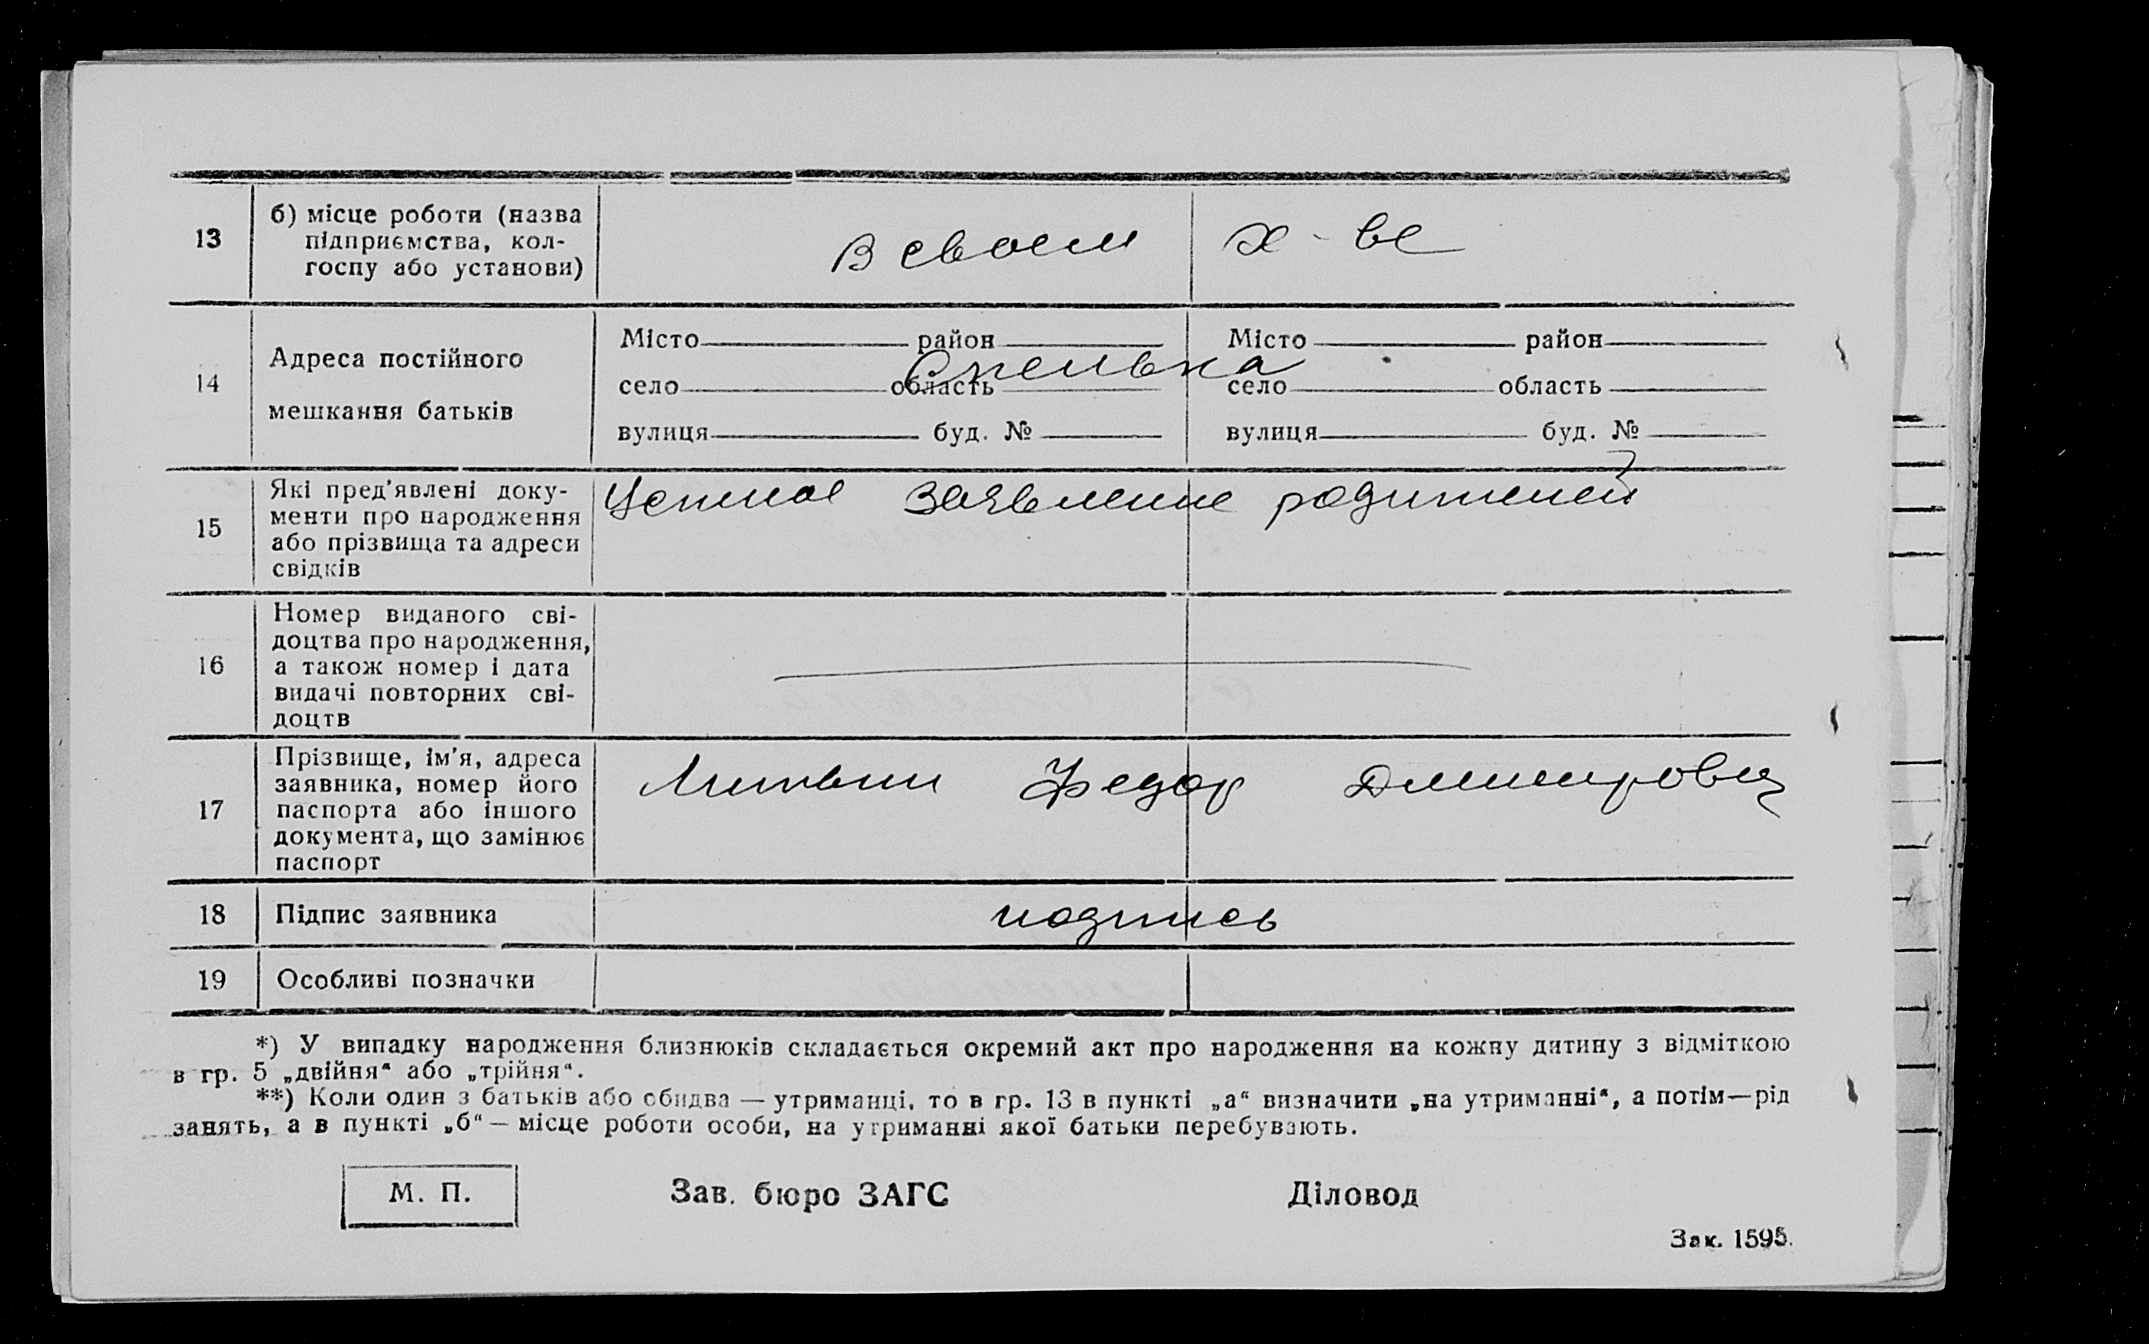 13 б) місце роботи (назва
підприємства, кол-
госпу або установи)
в своем х-ве
14 Адреса постійного
мешкання батьків
Місто район Місто район
Смельна
село область село область
вулиця буд. № вулиця буд. №
15 Які пред'явлені доку-
менти про народження
або прізвища та адреси
свідків
Устное заявление родителей
16 Номер виданого сві-
доцтва про народження,
а також номер і дата
видачі повторних сві-
доцтв
17 Прізвище, ім'я, адреса
заявника, номер його
паспорта або іншого
документа, що замінює
паспорт
Литвин Федор Дмитрович
18 Підпис заявника подпись
19 Особливі позначки
*) У випадку народження близнюків складається окремий акт про народження на кожну дитину з відміткою
в гр. 5 „двійня“ або „трійня“.
**) Коли один з батьків або обидва — утриманці, то в гр. 13 в пункті „а“ визначити „на утриманні“, а потім—рід
занять, а в пункті „б“ — місце роботи особи, на утриманні якої батьки перебувають.
М. П. Зав. бюро ЗАГС Діловод
Зак. 1595.